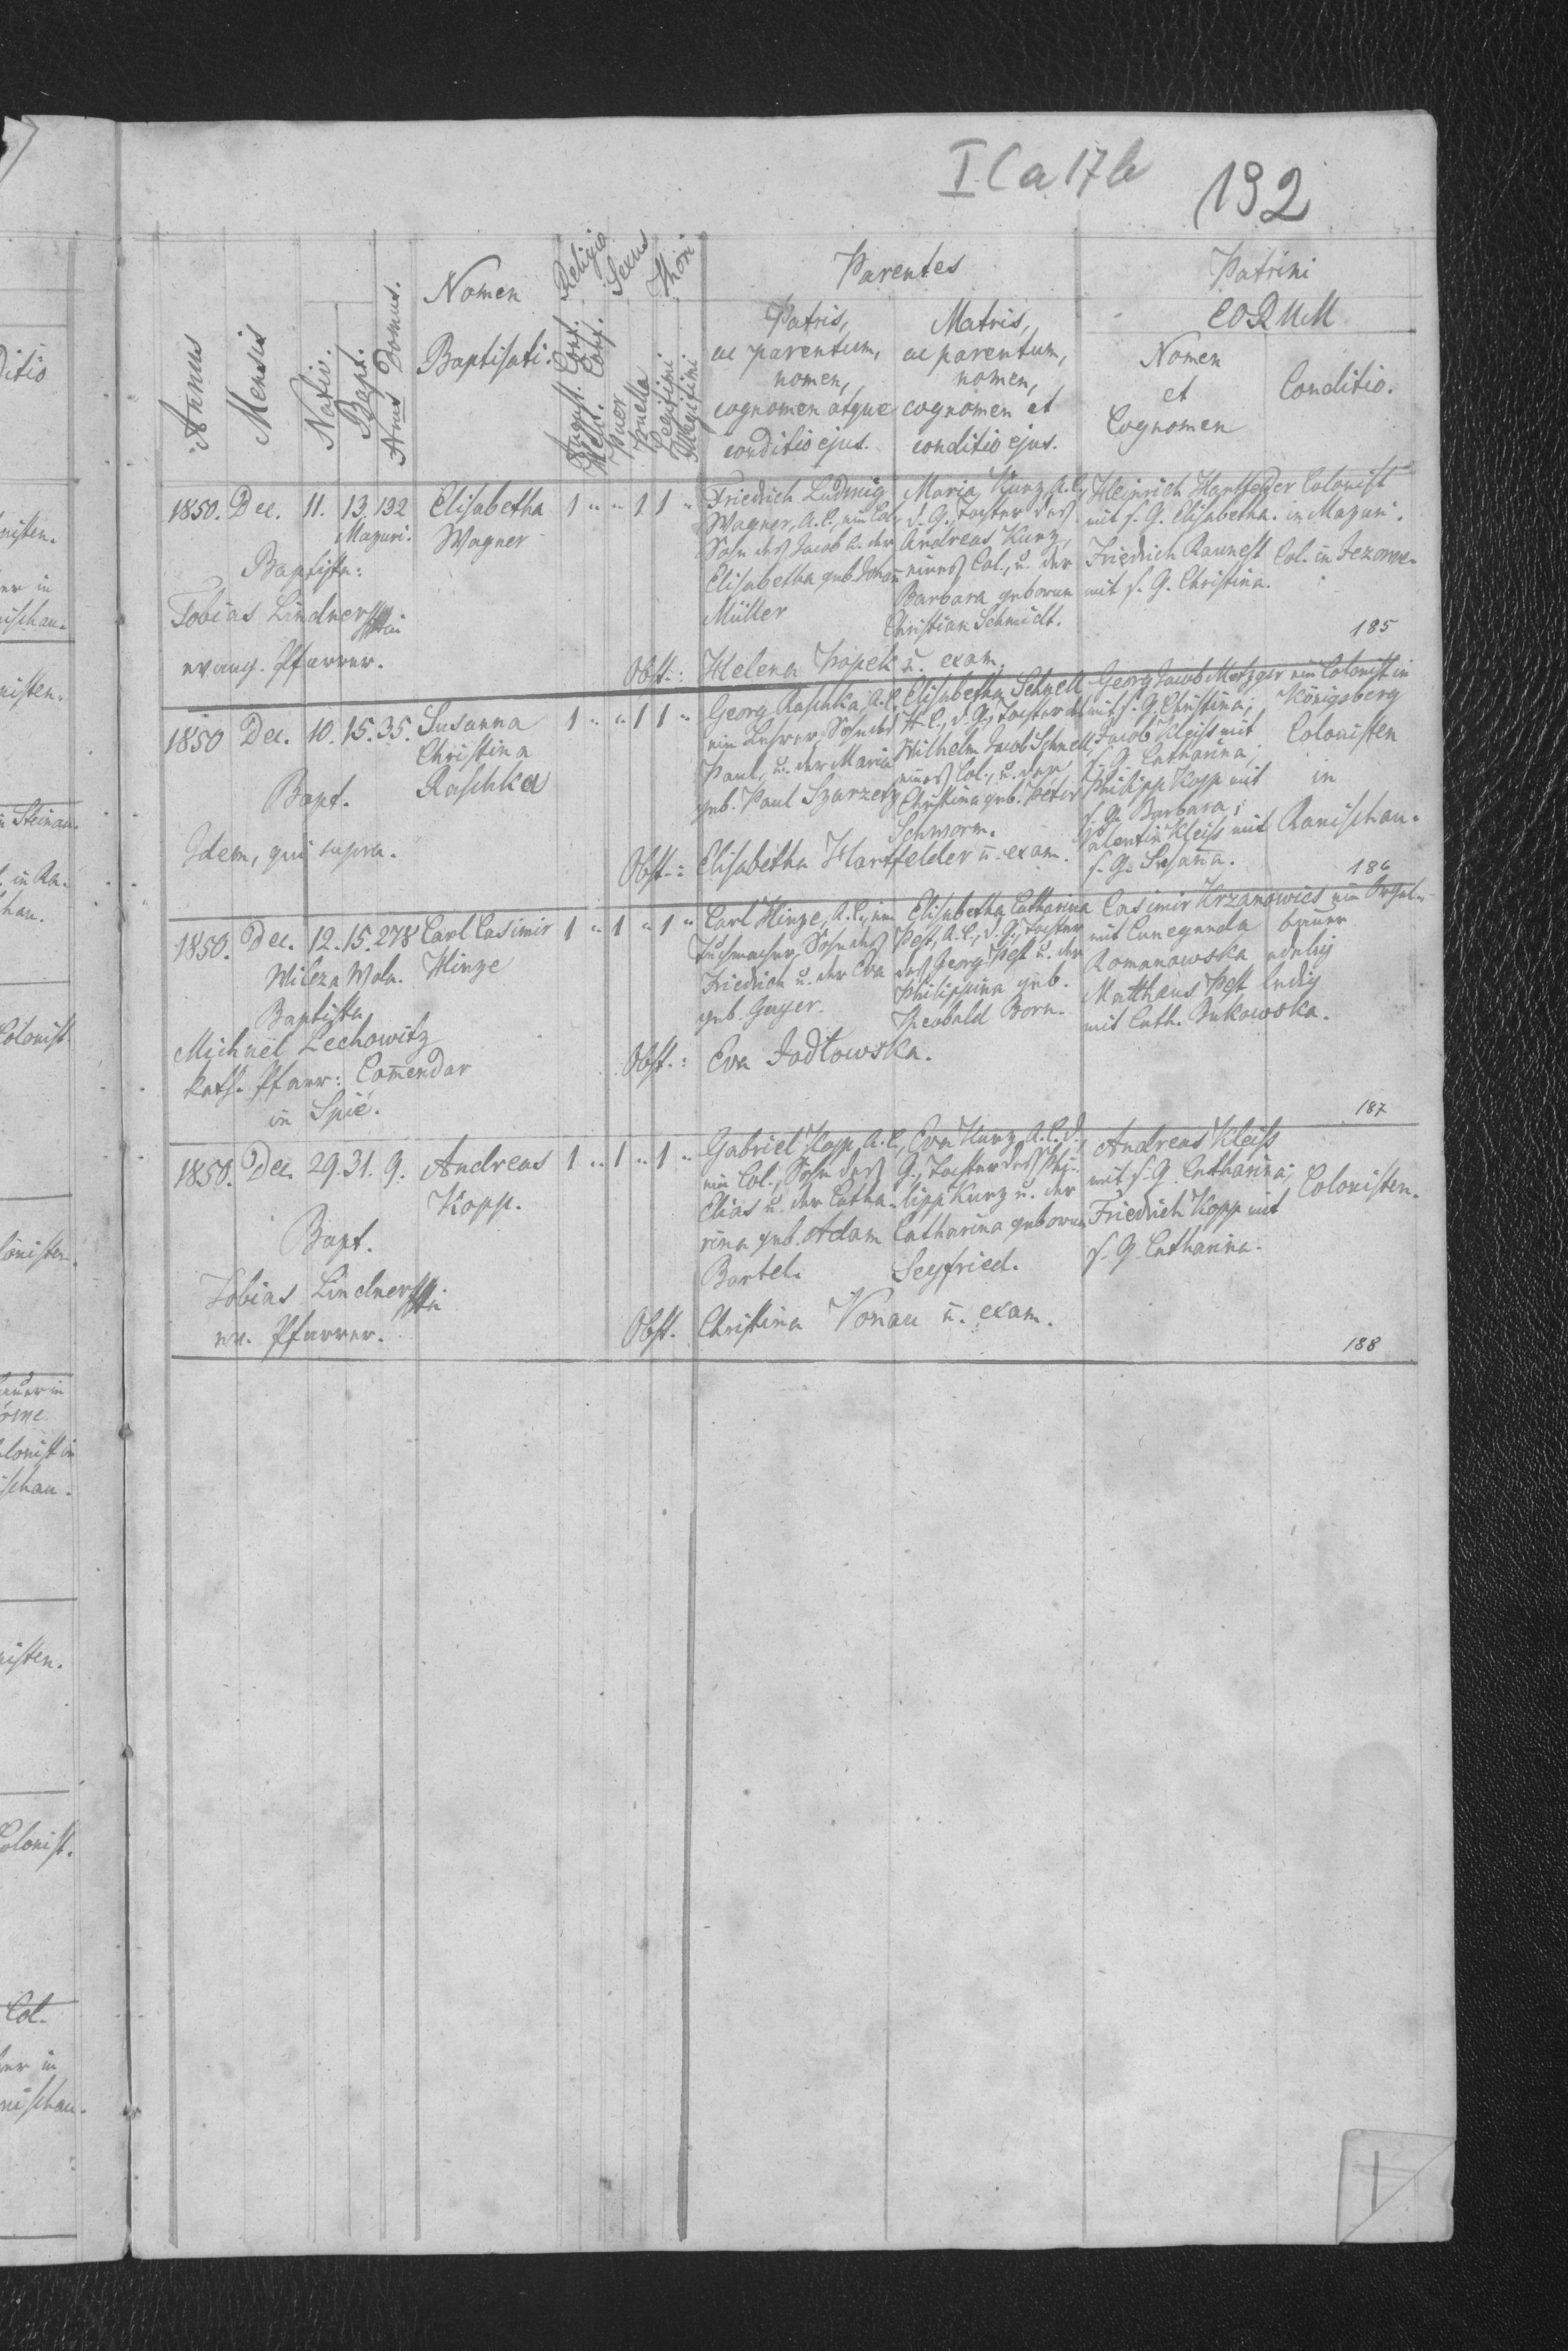 I C a 17 b
192
Annus
Mensis
Nativ.
Bapt.
Nrus Domus.
Nomen
Baptisati.
Religio
August. Conf.
Helv. Conf.
Sexus
Puer
Puella
Thori
Legitimi
Illegitimi
Parentes
Patris,
ac parentum,
nomen,
cognomen atque
conditio ejus.
Matris,
ac parentum,
nomen,
cognomen et
conditio ejus.
Patrini
EORUM
Nomen
et
Cognomen
Conditio.
1850. Dec. 11. 13. 132
Mazuri.
Elisabetha
Wagner
1 " " 1 1 "
Baptista:
Tobias Lindner
evang. Pfarrer.
Friedrich Ludwig
Wagner, A.C., ein Col.
Sohn des Jacob u. der
Elisabetha geb. Johann
Müller
Maria Kurz, A.C.,
d. G., Tochter des
Andreas Kurz,
eines Col., u. der
Barbara geboren
Christian Schmidt.
Heinrich Hartfelder Colonist
mit s. G. Elisabetha. in Mazuri.
Friedrich Raunest Col. in Jezorve-
mit s. G. Christina.
185
Obst.: Helena Tropek u. exam.
1850 Dec. 10. 15. 35. Susanna
Christina
Raschka
1 " " 1 1 "
Bapt.
Idem, qui supra.
Georg Raschka, A.C.,
ein Lehrer, Sohn des
Paul, u. der Maria
geb. Paul Szarzetz
Elisabetha Schnell
H.C., d. G., Tochter des
Wilhelm Jacob Schnell,
eines Col., u. der
Christina geb. Peter
Schworm.
Georg Jacob Metzger ein Colonist in
mit s. G. Christina; Königsberg
Jacob Kleiss mit Colonisten
s. G. Catharina,
Philipp Kopp mit in
s. G. Barbara;
Valentin Kleiss mit Ranischau.
s. G. Susanna.
186
Obst.: Elisabetha Hartfelder u. exam.
1850. Dec. 12. 15. 278 Carl Casimir
Wilcza Wola. Hinze
1 " 1 " 1 "
Baptista
Michael Lechowitz
kath. Pfarr: Comendar
in Spié.
Carl Hinze, A.C., ein
Tuchmacher, Sohn des
Friedrich u. der Eva
geb. Geyer.
Elisabetha Catharina
Pest, A.C., d. G., Tochter
des Georg Pest u. der
Philippina geb.
Theobald Born.
Casimir Krzanowics ein Orgel-
mit Cunegunda bauer
Romanowska adelig
Matthäus Pest ledig
mit Cath. Bukowska.
Obst.: Eva Jodłowska.
187
1850. Dec. 29. 31. 9. Andreas
Kopp.
1 " 1 " 1 "
Bapt.
Tobias Lindner
ev. Pfarrer.
Gabriel Kopp, A.C.,
ein Col., Sohn des
Elias u. der Catha-
rina geb. Adam
Bartel.
Eva Kurz, A.C. d.
G., Tochter des Phi-
lipp Kurz u. der
Catharina geboren
Seyfried.
Andreas Kleiss
mit s. G. Catharina;
Friedrich Kopp mit
s. G. Catharina.
Colonisten.
Obst. Christina Vonau u. exam.
188